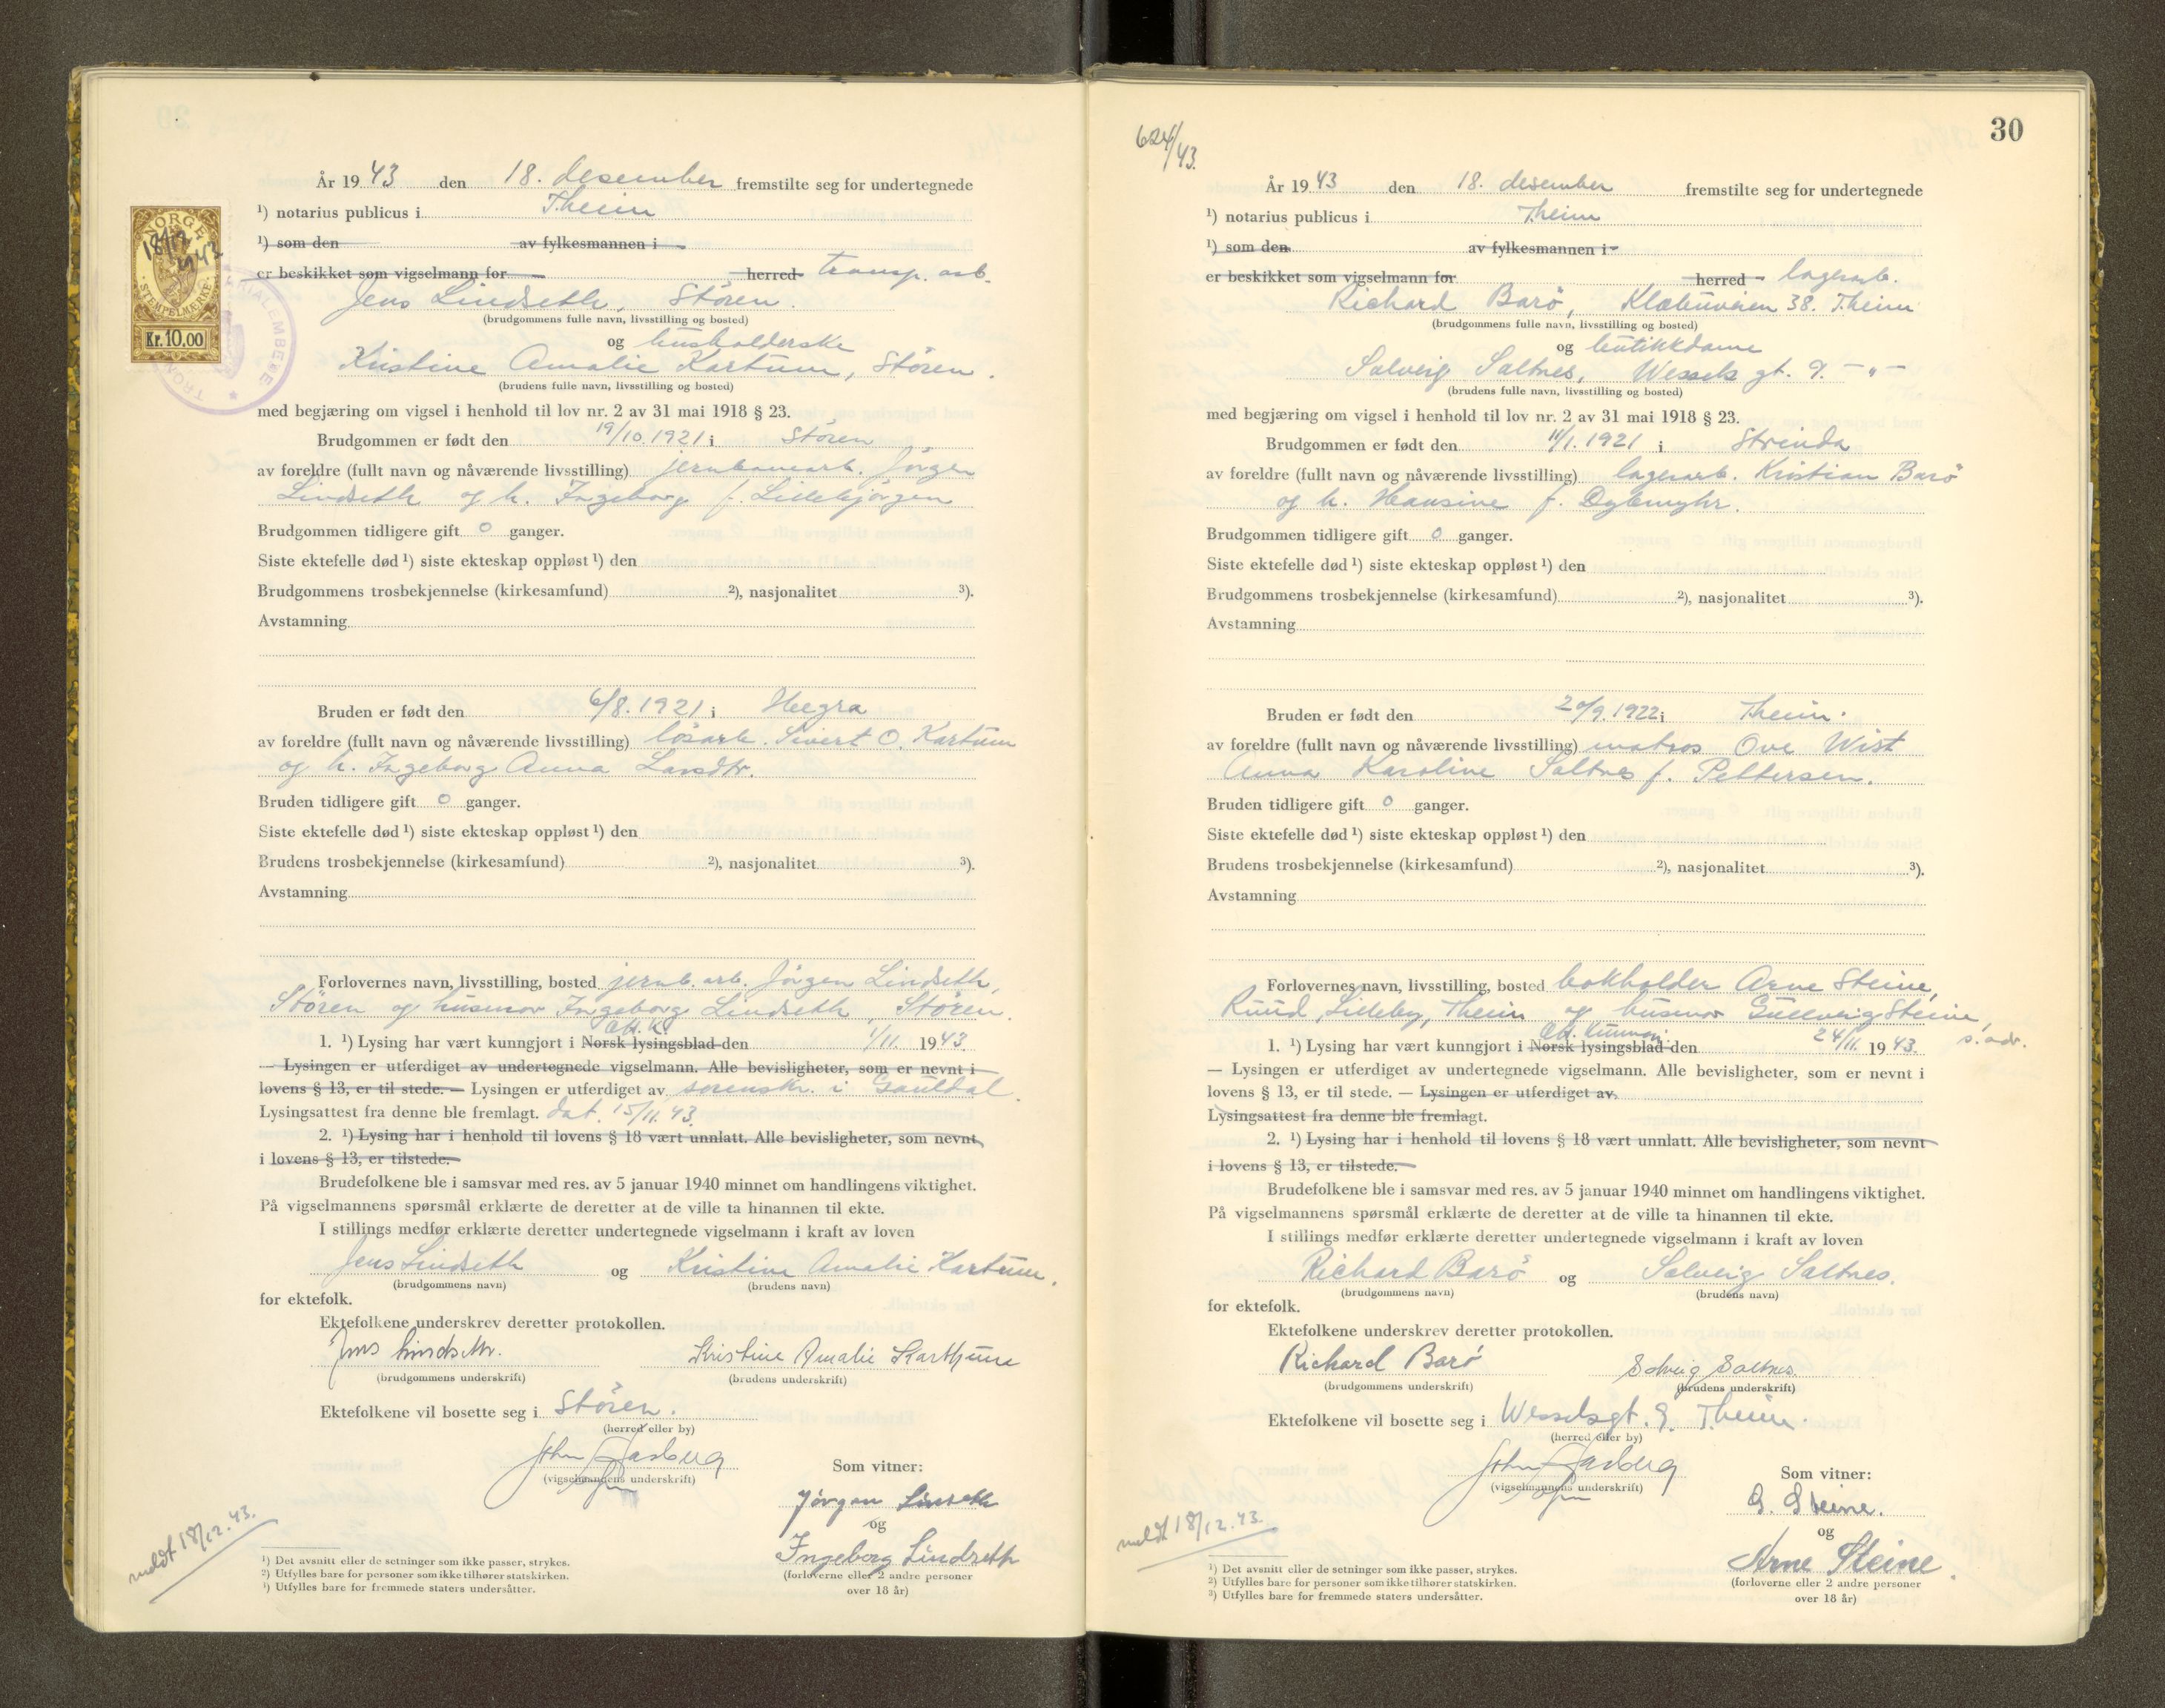 År 1943 den 18. desember fremstilte seg for undertegnede
¹) notarius publicus i T.heim
¹) som den av fylkesmannen i
er beskikket som vigselmann for herred transp. arb.
Jens Lindseth, Stören.
(brudgommens fulle navn, livsstilling og bosted)
og husholderske
Kristine Amalie Kartum, Stören.
(brudens fulle navn, livsstilling og bosted)
med begjæring om vigsel i henhold til lov nr. 2 av 31 mai 1918 § 23.
Brudgommen er født den 19/10.1921 i Stören
av foreldre (fullt navn og nåværende livsstilling) jernbanearb. Jörgen
Lindseth og h. Ingeborg f. Lillebjörgen
Brudgommen tidligere gift 0 ganger.
Siste ektefelle død ¹) siste ekteskap oppløst ¹) den
Brudgommens trosbekjennelse (kirkesamfund) ²), nasjonalitet ³).
Avstamning
Bruden er født den 6/8.1921 i Hegra
av foreldre (fullt navn og nåværende livsstilling) løsarb. Sivert O. Kartum
og h. Ingeborg Anna Larsdtr.
Bruden tidligere gift 0 ganger.
Siste ektefelle død ¹) siste ekteskap oppløst ¹) den
Brudens trosbekjennelse (kirkesamfund) ²), nasjonalitet ³).
Avstamning
Forlovernes navn, livsstilling, bosted jernb. arb. Jörgen Lindseth,
Stören og husmor Ingeborg Lindseth, Stören.
1. ¹) Lysing har vært kunngjort i Norsk lysingsblad den 1/11. 1943.
— Lysingen er utferdiget av undertegnede vigselmann. Alle bevisligheter, som er nevnt i
lovens § 13, er til stede. — Lysingen er utferdiget av sorenskr. i Gauldal.
Lysingsattest fra denne ble fremlagt. dat. 15/11.43.
2. ¹) Lysing har i henhold til lovens § 18 vært unnlatt. Alle bevisligheter, som nevnt
i lovens § 13, er tilstede.
Brudefolkene ble i samsvar med res. av 5 januar 1940 minnet om handlingens viktighet.
På vigselmannens spørsmål erklærte de deretter at de ville ta hinannen til ekte.
I stillings medfør erklærte deretter undertegnede vigselmann i kraft av loven
Jens Lindseth og Kristine Amalie Kartum.
(brudgommens navn) (brudens navn)
for ektefolk.
Ektefolkene underskrev deretter protokollen.
Jens Lindseth. Kristine Amalie Karthum
(brudgommens underskrift) (brudens underskrift)
Ektefolkene vil bosette seg i Stören.
(herred eller by)
John Aasberg
(vigselmannens underskrift)
Som vitner:
Jörgen Lindseth
og
Ingeborg Lindseth
(forloverne eller 2 andre personer
over 18 år)
meldt 18/12.43.
¹) Det avsnitt eller de setninger som ikke passer, strykes.
²) Utfylles bare for personer som ikke tilhører statskirken.
³) Utfylles bare for fremmede staters undersåtter.
NORGE
18/12
1943
STEMPELMERKE
Kr. 10.00
30
624/43.
År 1943 den 18. desember fremstilte seg for undertegnede
¹) notarius publicus i T.heim
¹) som den av fylkesmannen i
er beskikket som vigselmann for herred lagerarb.
Richard Barö, Klæbuveien 38. T.heim
(brudgommens fulle navn, livsstilling og bosted)
og butikkdame
Solveig Saltnes, Wessels gt. 9. - " -
(brudens fulle navn, livsstilling og bosted)
med begjæring om vigsel i henhold til lov nr. 2 av 31 mai 1918 § 23.
Brudgommen er født den 11/1.1921 i Strinda
av foreldre (fullt navn og nåværende livsstilling) lagerarb. Kristian Barö
og h. Hansine f. Dybmyhr.
Brudgommen tidligere gift 0 ganger.
Siste ektefelle død ¹) siste ekteskap oppløst ¹) den
Brudgommens trosbekjennelse (kirkesamfund) ²), nasjonalitet ³).
Avstamning
Bruden er født den 20/9.1922 i T.heim.
av foreldre (fullt navn og nåværende livsstilling) matros Ove Wist
Anna Karoline Saltnes f. Pettersen.
Bruden tidligere gift 0 ganger.
Siste ektefelle død ¹) siste ekteskap oppløst ¹) den
Brudens trosbekjennelse (kirkesamfund) ²), nasjonalitet ³).
Avstamning
Forlovernes navn, livsstilling, bosted bokholder Arne Steine,
Ruud, Lilleby, T.heim og husmor Gullveig Steine,
s. adr.
1. ¹) Lysing har vært kunngjort i Norsk lysingsblad den 24/11. 1943.
— Lysingen er utferdiget av undertegnede vigselmann. Alle bevisligheter, som er nevnt i
lovens § 13, er til stede. — Lysingen er utferdiget av
Lysingsattest fra denne ble fremlagt.
2. ¹) Lysing har i henhold til lovens § 18 vært unnlatt. Alle bevisligheter, som nevnt
i lovens § 13, er tilstede.
Brudefolkene ble i samsvar med res. av 5 januar 1940 minnet om handlingens viktighet.
På vigselmannens spørsmål erklærte de deretter at de ville ta hinannen til ekte.
I stillings medfør erklærte deretter undertegnede vigselmann i kraft av loven
Richard Barö og Solveig Saltnes.
(brudgommens navn) (brudens navn)
for ektefolk.
Ektefolkene underskrev deretter protokollen.
Richard Barö Solveig Saltnes.
(brudgommens underskrift) (brudens underskrift)
Ektefolkene vil bosette seg i Wesselsgt. 9. T.heim.
(herred eller by)
John Aasberg
(vigselmannens underskrift)
Som vitner:
G. Steine.
og
Arne Steine.
(forloverne eller 2 andre personer
over 18 år)
meldt 18/12.43.
¹) Det avsnitt eller de setninger som ikke passer, strykes.
²) Utfylles bare for personer som ikke tilhører statskirken.
³) Utfylles bare for fremmede staters undersåtter.